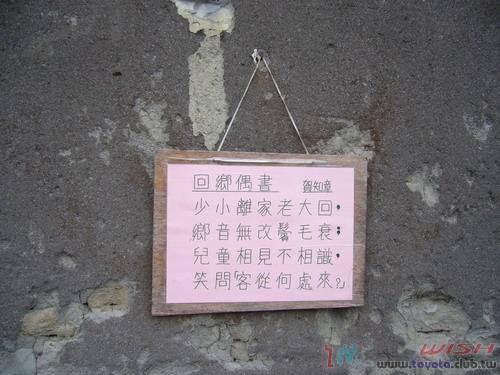 回鄉偶書 賀知章
少小離家老大回，
鄉音無改鬢毛衰；
兒童相見不相識，
笑問客從何處來？
WISH
www.toyota.club.tw